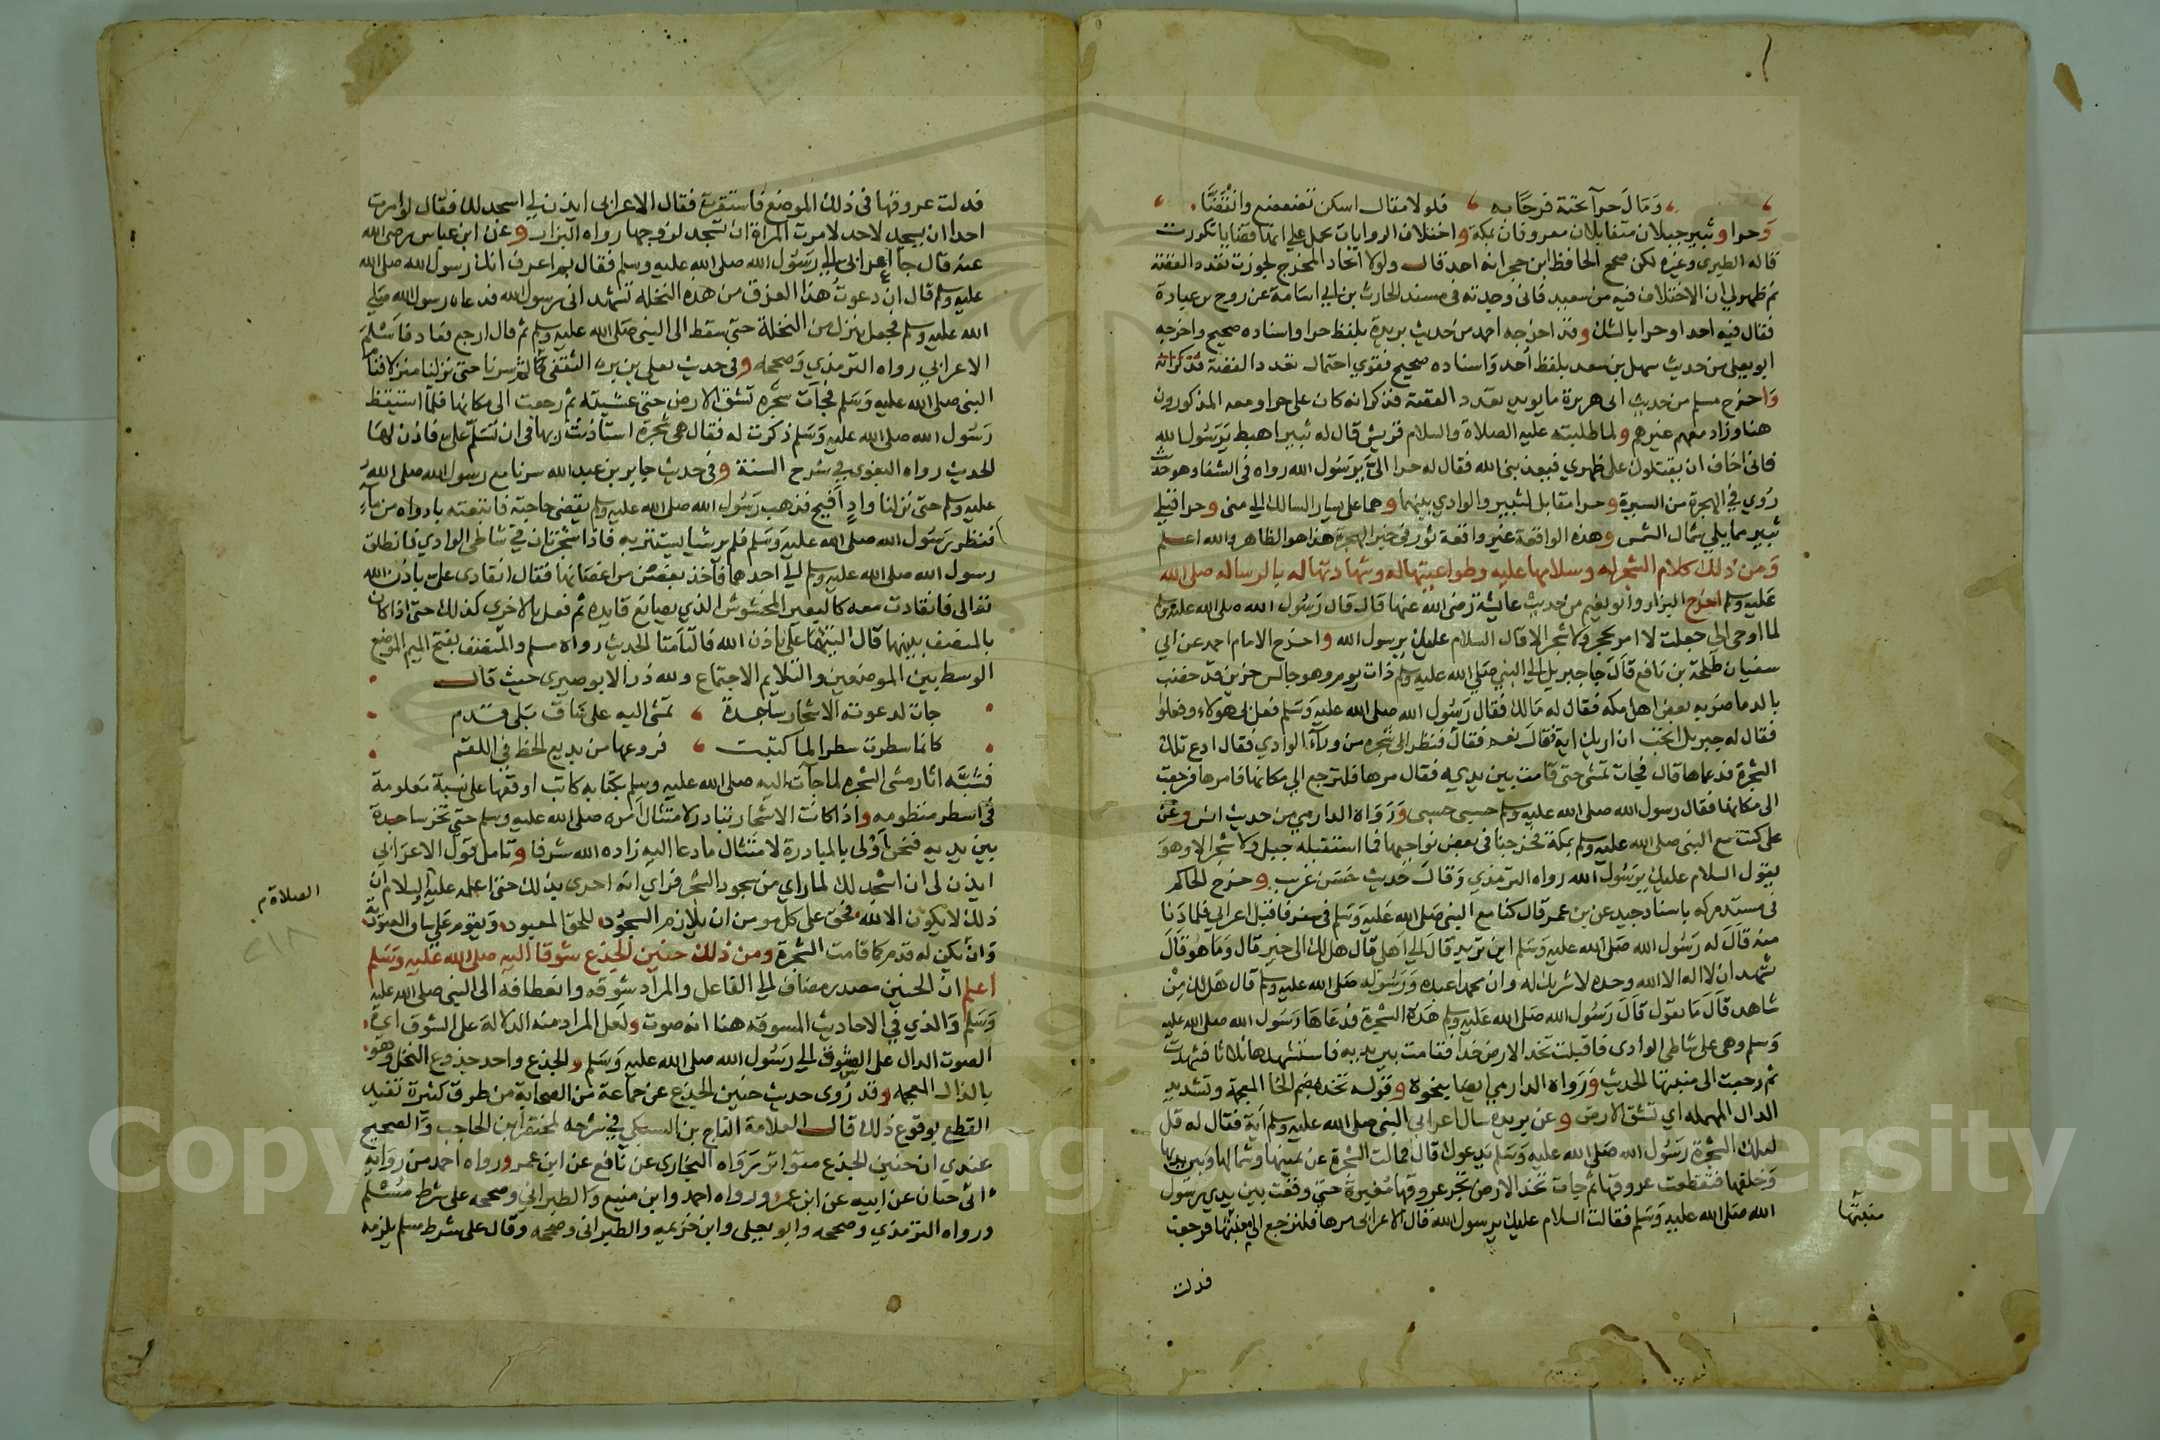 ومال حرآ تحته فرحا به فلولا مقال اسكن تضعضع وانقضا
وحرا وثبير جبلان متقابلان معروفان بمكة واختلاف الروايات يحمل على انها قضايا تكررت
قاله الطبرى وغيره لكن صحح الحافظ ابن حجر انه احد قال ولولا اتحاد المخرج لجوزت تعدد القصة
ثم ظهر لي ان الاختلاف فيه من سعيد فاني وجدته في مسند الحارث بن ابي اسامة عن روح بن عبادة
فقال فيه احد او حرا بالشك وقد اخرجه احمد من حديث بريدة بلفظ حرا واسناده صحيح واخرجه
ابو يعلى من حديث سهل بن سعد بلفظ أحد واسناده صحيح فقوي احتمال تعدد القصة
واخرج مسلم من حديث ابي هريرة ما يويد تعدد القصة فذكر انه كان على حرا ومعه المذكورون
هنا وزاد معهم غيرهم ولما طلبته عليه الصلاة والسلام قريش قال له ثبير اهبط يرسول الله
فانى اخاف ان يقتلون على ظهري فيعذبنى الله فقال له حرا الىّ يرسول الله رواه فى الشفا وهو حديث
رُوي في الهجرة من السيرة وحرا مقابل لثبير والوادي بينهما وهما على يسار السالك الي منى وحرا قبلي
ثبير مما يلي شمال الشمس وهذه الواقعة غير واقعة ثور في خبر الهجرة هذا هو الظاهر والله اعلم
ومن ذلك كلام الشجر له وسلامها عليه وطواعيتها له وشهادتها له بالرساله صلى الله
عليه وسلم اخرج البزار وأبو نعيم من حديث عايشة رضى الله عنها قال قال رسول الله صلى الله عليه وسلم
لما اوحى الي جعلت لا امر بحجر ولا شجر الا قال السلام عليك يرسول الله واخرج الامام احمد عن ابي
سفيان طلحة بن نافع قال جا جبريل الي النبي صلى الله عليه وسلم ذات يوم وهو جالس حزين قد خضب
بالدما ضربه بعض اهل مكه فقال له مالك فقال رسول الله صلى الله عليه وسلم فعل بي هولاء وفعلوا
فقال له جبريل اتحب ان اريك اية فقال نعم فقال فنظر الى شجره من ورآء الوادي فقال ادع تلك
الشجرة فدعاها قال فجات تمشي حتى قامت بين يديه فقال مرها فلترجع الي مكانها فامرها فرجعت
الى مكانها فقال رسول الله صلى الله عليه وسلم حسبى حسبى ورواه الدارمي من حديث انس وعن
على كنت مع النبي صلى الله عليه وسلم بمكة فخرجنا في بعض نواحيها فما استقبله جبل ولا شجر الا وهو
يقول السلام عليك يرسول الله رواه الترمذي وقال حديث حسن غريب وخرج الحاكم
في مستدركه باسناد جيد عن بن عمر قال كنا مع النبي صلى الله عليه وسلم في سفر فاقبل اعرابي فلما دنا
منه قال له رسول الله صلى الله عليه وسلم اين تريد قال الي اهلي قال هل لك الى خير قال وما هو قال
تشهد ان لا اله الا الله وحده لا شريك له وان محمدا عبده ورسوله صلى الله عليه وسلم قال هل لك مِنْ
شاهد قال ما تقول قال رسول الله صلى الله عليه وسلم هذه الشجرة فدعاها رسول الله صلى الله عليه
وسلم وهى على شاطى الوادى فاقبلت تخد الارض خدا فقامت بين يديه فاستشهدها ثلاثا فشهدت
ثم رجعت الى منبتها الحديث ورواه الدارمي ايضا بنحوه وقوله تخد بضم الخا المعجمة وتشديد
الدال المهمله اي تشق الارض وعن بريده سال اعرابي النبي صلى الله عليه وسلم آية فقال له قل
لتلك الشجرة رسول الله صلى الله عليه وسلم يدعوك قال فمالت الشجرة عن يمينها وشمالها وبين يديها
وخلفها فتقطعت عروقها ثم جات تخد الارض تجر عروقها مُغبرة حتى وقفت بين يدي رسول
الله صلى الله عليه وسلم فقالت السلام عليك يرسول الله قال الاعرابى مرها فلترجع الي منبتها فرجعت
منبتها
فدلت
فدلت عروقها فى ذلك الموضع فاستقرت فقال الاعرابى ايذن لي اسجد لك فقال لو امرت
احدا ان يسجد لاحد لامرت المرأة ان تسجد لزوجها رواه البزار وعن ابن عباس رضى الله
عنه قال جا أعرابى الي رسول الله صلى الله عليه وسلم فقال بم اعرف انك رسول الله صلى الله
عليه وسلم قال ان دعوتُ هذا العذق من هذه النخله تشهد انى رسول الله فدعاه رسول الله صلى
الله عليه وسلم فجعل ينزل من النخلة حتى سقط الى النبي صلى الله عليه وسلم ثم قال ارجع فعاد فاسلم
الاعرابي رواه الترمذي وصححه وفى حديث يعلى بن مره الثقفى ثم سرنا حتى نزلنا منزلا فنام
النبى صلى الله عليه وسلم فجآت شجره تشق الارض حتى غشيته ثم رجعت الى مكانها فلما استيقظ
رسول الله صلى الله عليه وسلم ذكرت له فقال هى شجرة استاذنت ربها فى ان تسلم علىّ فاذن لها
الحديث رواه البغوي في شرح السنة وفى حديث جابر بن عبد الله سرنا مع رسول الله صلى الله
عليه وسلم حتى نزلنا وادٍ أفيح فذهب رسول الله صلى الله عليه وسلم يقضى حاجته فاتبعته باداوه من مآءٍ
فنظر رسول الله صلى الله عليه وسلم فلم ير شيا يستتر به فاذا شجرتان في شاطى الوادي فانطلق
رسول الله صلى الله عليه وسلم الي احدهما فأخذ بغصن من اغصانها فقال انقادى علىّ باذن الله
تعالى فانقادت معه كالبعير المخشوش الذي يصانع قايده ثم فعل بالاخرى كذلك حتى اذا كان
بالمنصف بينهما قال التيما علىّ باذن الله فالتامتا الحديث رواه مسلم والمنصف بفتح الميم الموضع
الوسط بين الموضعين والتلايم الاجتماع ولله در الابوصيرى حيث قال
جات لدعوته الاشجار ساجدة تمشى اليه على ساق بلى قدم
كانما سطرت سطرا لما كتبت فروعها من بديع الخط في اللقم
فشبّه اثار مشى الشجر لما جآت اليه صلى الله عليه وسلم بكتابه كاتب اوقعها على نسبة معلومة
في اسطر منظومه واذا كانت الاشجار تبادر لامتثال امره صلى الله عليه وسلم حتى تخر ساجدة
بين يديه فنحن أولى بالمبادرة لامتثال ما دعا اليه زاده الله شرفا وتامل قول الاعرابي
ايذن لى ان اسجد لك لما راي من سجود الشجر فراي انه احرى بذلك حتى اعلمه عليه السلام ان
الصلاة م
ذلك لا يكون الا لله فحق على كل مومن ان يلازم السجود للحق المعبود ويقوم على ساق العبودية
٢١٨
وان لم يكن له قدم كما قامت الشجرة ومن ذلك حنين الجذع شوقا اليه صلى الله عليه وسلم
اعلم ان الحنين مصدر مضاف الي الفاعل والمراد شوقه وانعطافه الى النبي صلى الله عليه
وسلم والذي في الاحاديث المسوقة هنا انه صوت ولعل المراد منه الدلالة على الشوق اي
الصوت الدال على الشوق الي رسول الله صلى الله عليه وسلم والجذع واحد جذوع النخل وهو
بالذال المعجمه وقد رُوى حديث حنين الجذع عن جماعة من الصحابة من طرق كثيرة تفيد
القطع بوقوع ذلك قال العلامة التاج بن السبكي في شرحه لمختصر بن الحاجب والصحيح
عندي ان حنين الجذع متواتر رواه البخاري عن نافع عن ابن عمر ورواه احمد من رواية
ابي جناب عن ابيه عن ابن عمر ورواه احمد وابن منيع والطبراني وصححه على شرط مسلم
ورواه الترمذي وصححه وابو يعلى وابن خزيمه والطبرانى وصححه وقال على شرط مسلم يلزمه
Copyright © King Saud University